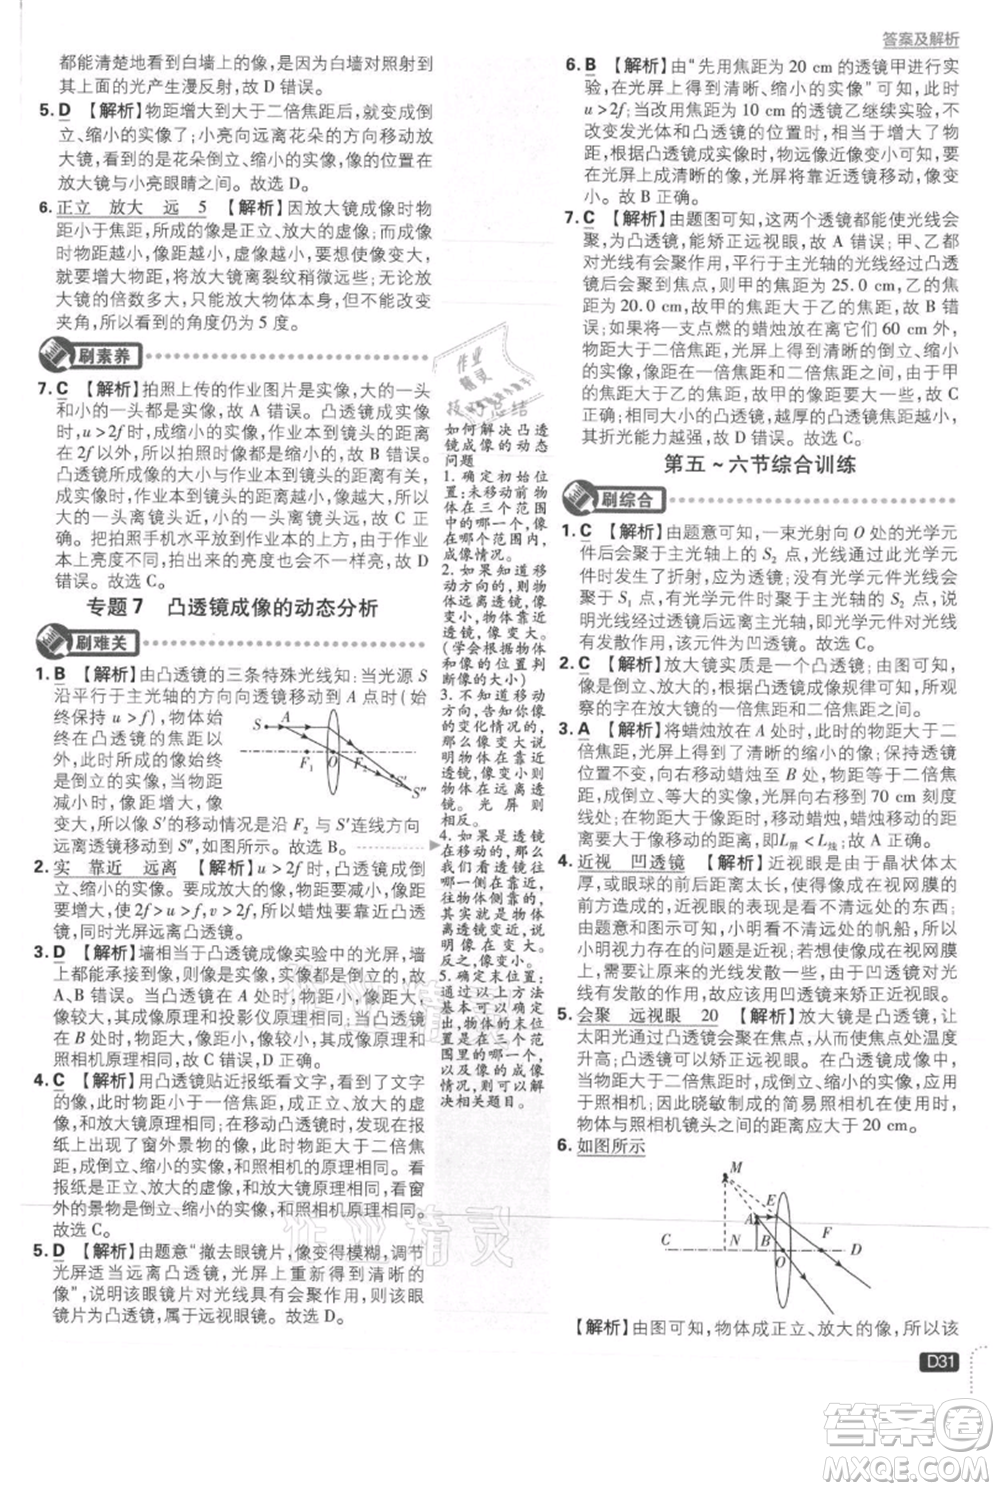 答案及解析
都能清楚地看到白墙上的像,是因为白墙对照射到
其上的光产生漫反射,故 D 错误。
5. D 【解析】物距增大到大于二倍焦距后,就成倒
立、缩小的实像了;小亮向远离花朵的方向移动放
大镜,看到的是花朵倒立、缩小的实像,像的位置在
放大镜与小亮眼睛之间。故选 D。
6. 正立 放大 远 5 【解析】因放大镜成像时物
距小于焦距,所成的像为正立、放大的虚像;而成虚
像时物距越小,像距越小,虚像越小,要想使像变大,
就要增大物距,将放大镜离裂纹稍微远些;无论放大
镜的倍数多大,只能放大物体的大小,但不能改变
夹角,所以看到的角度仍为 5 度。
刷素养
7. C 【解析】拍照上传的作业图片是实像,大的一头
和小的一头都是实像,故 A 错误。凸透镜成实像
时,当 u > 2f 时,成缩小的实像,作业本到镜头的距离
应大于二倍焦距,故 B 错误。凸透镜成实像时,
凸透镜所成像的大小与物体到凸透镜的距离有
关,物近像大,作业本到镜头的距离不相等,大的
一头作业本到镜头近,小的一头镜头远,故 C 正
确。把拍照手机水平放到作业本的上方,由于作业
本上高度不同,拍出来的亮度会不一样亮,故 D
错误。故选 C。
专题 7 凸透镜成像的动态分析
刷难关
1. B 【解析】由凸透镜的三条特殊光线知:当光源 S
沿平行于主光轴的方向向透镜移动到 A 点时(始
终保持 u > f),物体始
终在凸透镜的焦距以
外,此时所成的像始终
是倒立的实像,当物距
减小时,像距增大,像
变大,所以像 S′的移动情况是沿 F₂ 与 S′连线方向
远离透镜移动到 S″,如图所示。故选 B。
S A F₁ O F₂ S′ S″
2. 实 靠近 远离 【解析】u > 2f 时,凸透镜成倒立、缩
小的实像。要成放大的像,物距要减小,像距要
变大,使 2f > u > f, v > 2f,所以蜡烛靠近凸透
镜,同时光屏远离凸透镜。故选 D。
3. D 【解析】墙相当于凸透镜成像实验中的光屏,墙
上都能承接到像,则像是实像,实像是倒立的,故
A、B 错误。当凸透镜在 A 处时,物距小,像距大,成
像大,成像原理和投影仪成像原理相同;当凸透镜
在 B 处时,物距大,像距小,成像小,成像原理与照
相机原理相同,故 C 错误,D 正确。
4. C 【解析】用凸透镜贴近报纸看文字,看到了文字
放大的像,物距小于一倍焦距,成正立、放大的虚
像,和放大镜的原理相同。在移动过程中,在报
纸上出现了窗外景物的像,物距大于二倍焦距,
成倒立、缩小的实像,和照相机的原理相同。看
报纸的是正立、放大的虚像,与放大镜原理相同,窗
外的景物是倒立、缩小的实像,和照相机原理相同。
故选 C。
5. D 【解析】由题意“撤去眼镜片,像变得模糊,调节
光屏适当远离凸透镜,光屏上重新得到清晰的
像”,说明该眼镜片对光线具有会聚作用,则该眼
镜片为凸透镜,属于远视眼镜。故选 D。
技巧总结
如何解决凸透
镜成像的动态
问题
1. 确定初始位
置:未移动前物体
在哪一个范围
内,对应的是成像
中的哪一个,成
像情况。
2. 如果知道移动
方向的,则是物
体远离透镜,像
变小,物体靠近
透镜,像变大。
(学会根据物体
和像的位置判
断像的大小)
3. 不知道移动
方向,知道像的
变化情况的,如
果像变大,说明
物体靠近透镜,
光屏则相
反。
4. 如果是透镜
在移动的,那么
我们看透镜在
哪一侧靠近,那
么这一侧的物
体就靠近透镜,
说明像变大,像
远离透镜。
5. 确定末位置:
通过以上方法
基本可以知道,
物体的末位置
在哪一个范
围内,对应的成
像情况,可以解
决相关题目。
6. B 【解析】由“先用焦距为 20 cm 的透镜甲进行实
验,在光屏上得到清晰、缩小的实像”可知,此时
u > 2f;当改用焦距为 10 cm 的透镜乙继续实验,不
改变发光体和凸透镜的位置时,物距大于二倍焦
距,根据凸透镜成实像时,物远像近像变小可知,
在光屏上成清晰的像,光屏需要靠近透镜,且像变
小。故 B 正确。
7. C 【解析】由题图可知,这两个透镜都能使光线会
聚,为凸透镜,能矫正远视眼,故 A 错误;甲、乙都
对光线有会聚作用,平行于主光轴的光线经凸透
镜后会聚到焦点,则焦点分别在 25.0 cm
和 20.0 cm 处,故甲的焦距大于乙的焦距,故 B 错
误;如果将一支点燃的蜡烛放在离甲 60 cm 处,
此时物距大于二倍焦距,在光屏上成清晰的像,像距
在一倍焦距和二倍焦距之间,故 C
正确;相同大小的凸透镜,越厚的凸透镜焦距越小,
其折光能力越强,故 D 错误。故选 C。
第五～六节综合训练
刷综合
1. C 【解析】由题意可知,一束光射向 O 处的光学元
件后会聚于主光轴上的 S₂ 点,光线经过此光学元
件时发生了折射,不加光学元件光线会聚在
S₁ 点,加光学元件后光线会聚在 S₂ 点,
说明光线经过光学元件后推迟会聚,即光学元件对光线
有发散作用,该元件为凹透镜。故选 C。
2. C 【解析】放大镜实质是一个凸透镜;由题图可知,
像是倒立、放大的,由凸透镜成像规律可知,所
观察的字在放大镜的一倍焦距和二倍焦距之间。
3. A 【解析】将蜡烛放在 A 处时,此时的物距大于二
倍焦距,光屏上呈倒立、缩小的实像;保持透镜
位置不变,向右移动蜡烛至 B 处,物距等于二倍焦
距,成倒立、等大的实像,光屏向右移到 70 cm 刻度
线处;在此过程中,物距从大于二倍焦距变为等于二倍焦距,蜡烛移动的
距离要大于像移动的距离,即L屏 < L烛;故 A 正确。
4. 近视 凹透镜 【解析】近视眼是由于晶状体太
厚,或眼球的前后距离太长,使像成在视网膜的
前方形成的,因此,近视眼是看不清远处的东西;
由题意和图示可知,小明看不清远处的帆船,所以
小明视力存在的问题是近视;要想使像成在视网膜
上,必须将原来的光线发散一些,由于凹透镜对光
线有发散作用,因此可以用凹透镜来矫正。
5. 会聚 远视眼 20 【解析】放大镜是凸透镜,让
太阳光通过凸透镜后会聚成一点,从而使焦点处温度
升高;凸透镜可以矫正远视眼。在凸透镜成像中,当
物距大于二倍焦距时,成倒立、缩小的实像,应用于
照相机;因此晓敏制成的简易照相机在使用时,
物体与照相机镜头之间的距离应大于 20 cm。
6. 如图所示
M A E C N B O F D
【解析】由图可知,物体成正立、放大的像,所以该
D31
作业精灵
答案圈
MXQE.COM